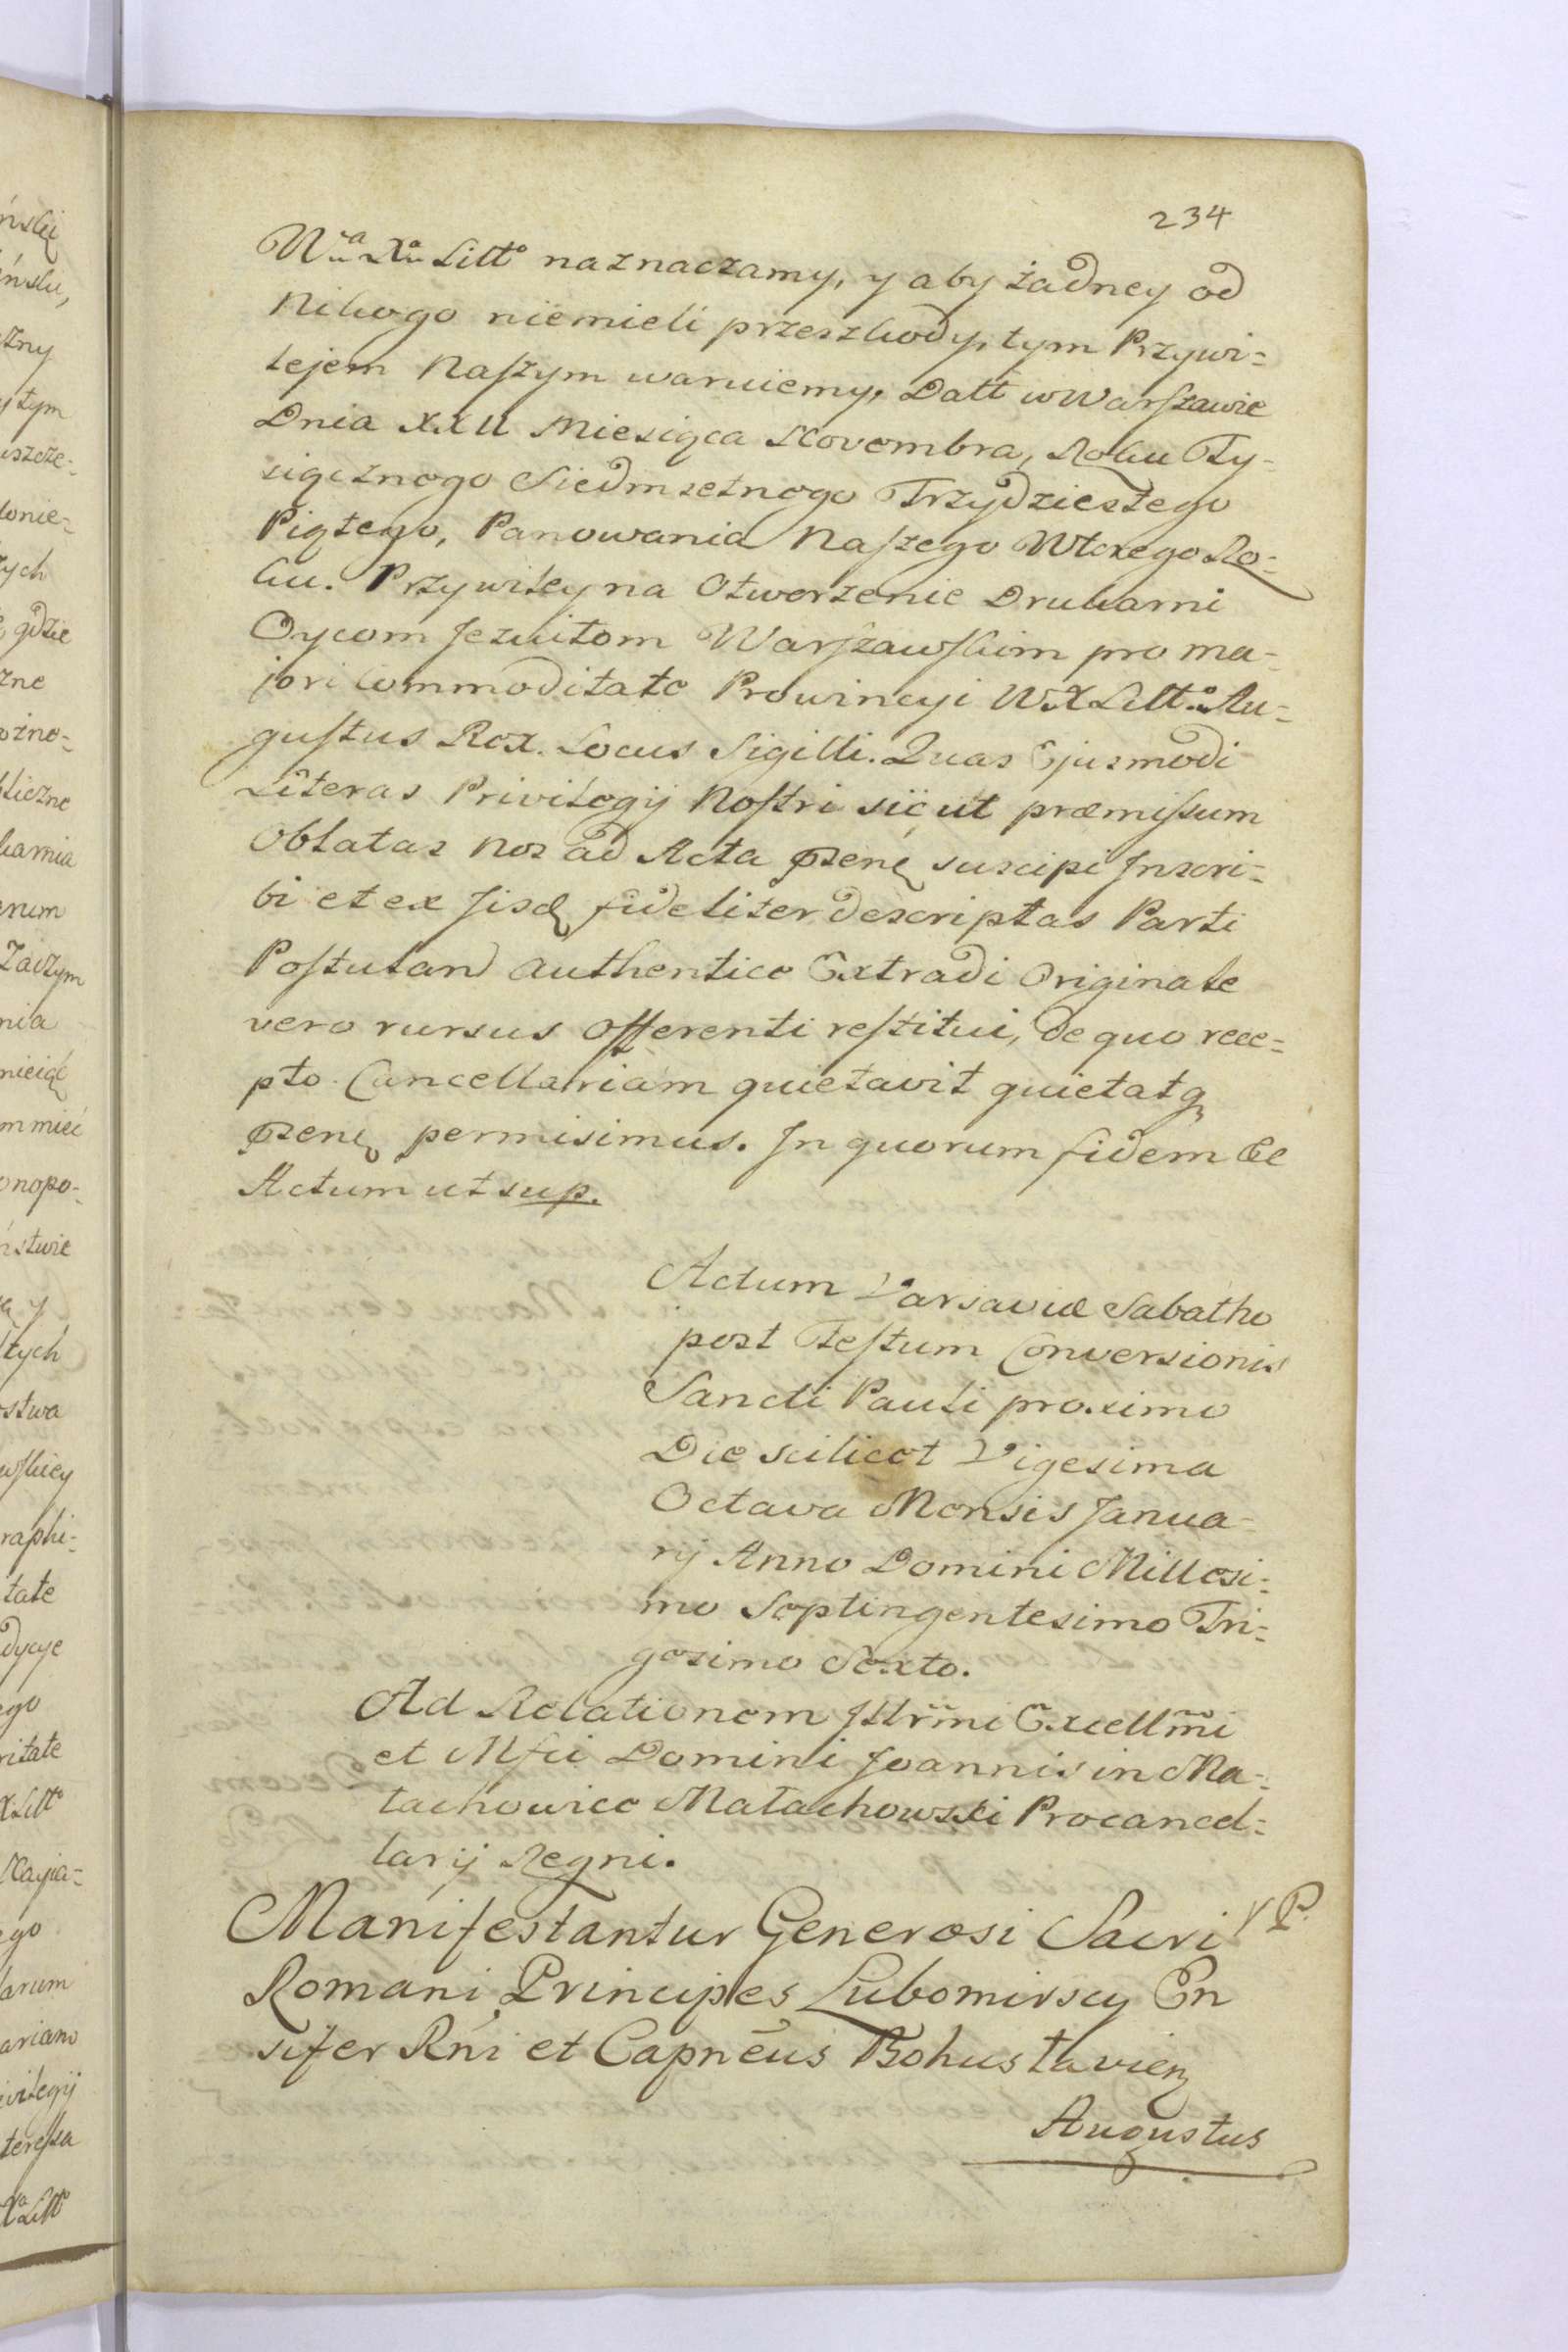 234
Wa Xa Litto naznaczamy, y aby żadney od
Nikogo niemieli przeszkody, tym Przywi-
lejem Naszym waruiemy, Datt w Warszawie
Dnia XXII Miesiąca Novembra, Roku Ty-
siącznego Siedmsetnego Trzydziestego
Piątego, Panowania Naszego Wtorego Ro-
ku. Przywiley na Otworzenie Drukarni
Oycom Jezuitom Warszawskim pro ma-
jori Commoditate Prowincyi W.X.Litto. Au-
gustus Rex. Locus Sigilli. Quas Ejusmodi
Literas Privilegij Nostri sic ut præmissum
Oblatas Nos ad Acta præsen suscipi Inscri-
bi et ex Iisd fideliter descriptas Parti
Postuland authentice Extradi Originale
vero rursus Offerenti restitui, de quo rece-
pto Cancellariam quietavit quietatq
præsen permisimus. In quorum fidem &c
Actum ut sup.
Actum Varsaviæ Sabatho
post Festum Conversionis
Sancti Pauli proximo
Die scilicet Vigesima
Octava Mensis Janua-
rij Anno Domini Millesi-
mo Septingentesimo Tri-
gesimo Sexto.
Ad Relationem Illrmi Excellmi
et Mfci Domini Joannis in Ma-
łachowice Małachowski Procancel-
larij Regni.
Manifestantur Generosi Sacri
Romani Principes Lubomirscy En
sifer Rni et Capneus Bohuslavien
Augustus
ński
ńsku,
zny
ytym
uszcze-
łonie-
zych
, gdzie
zne
ożno-
bliczne
karnia
enum
Zaczym
nia
m mieć
onopo-
ństwie
y
tych
ostwa
wskiey
raphi-
tate
dycye
ego
ritate
X.Litto
ego
larum
ariano
ivilegij
teressa
Xa Litto